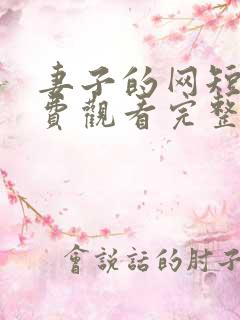 妻子的网短
費觀看完整
會說話的肘子